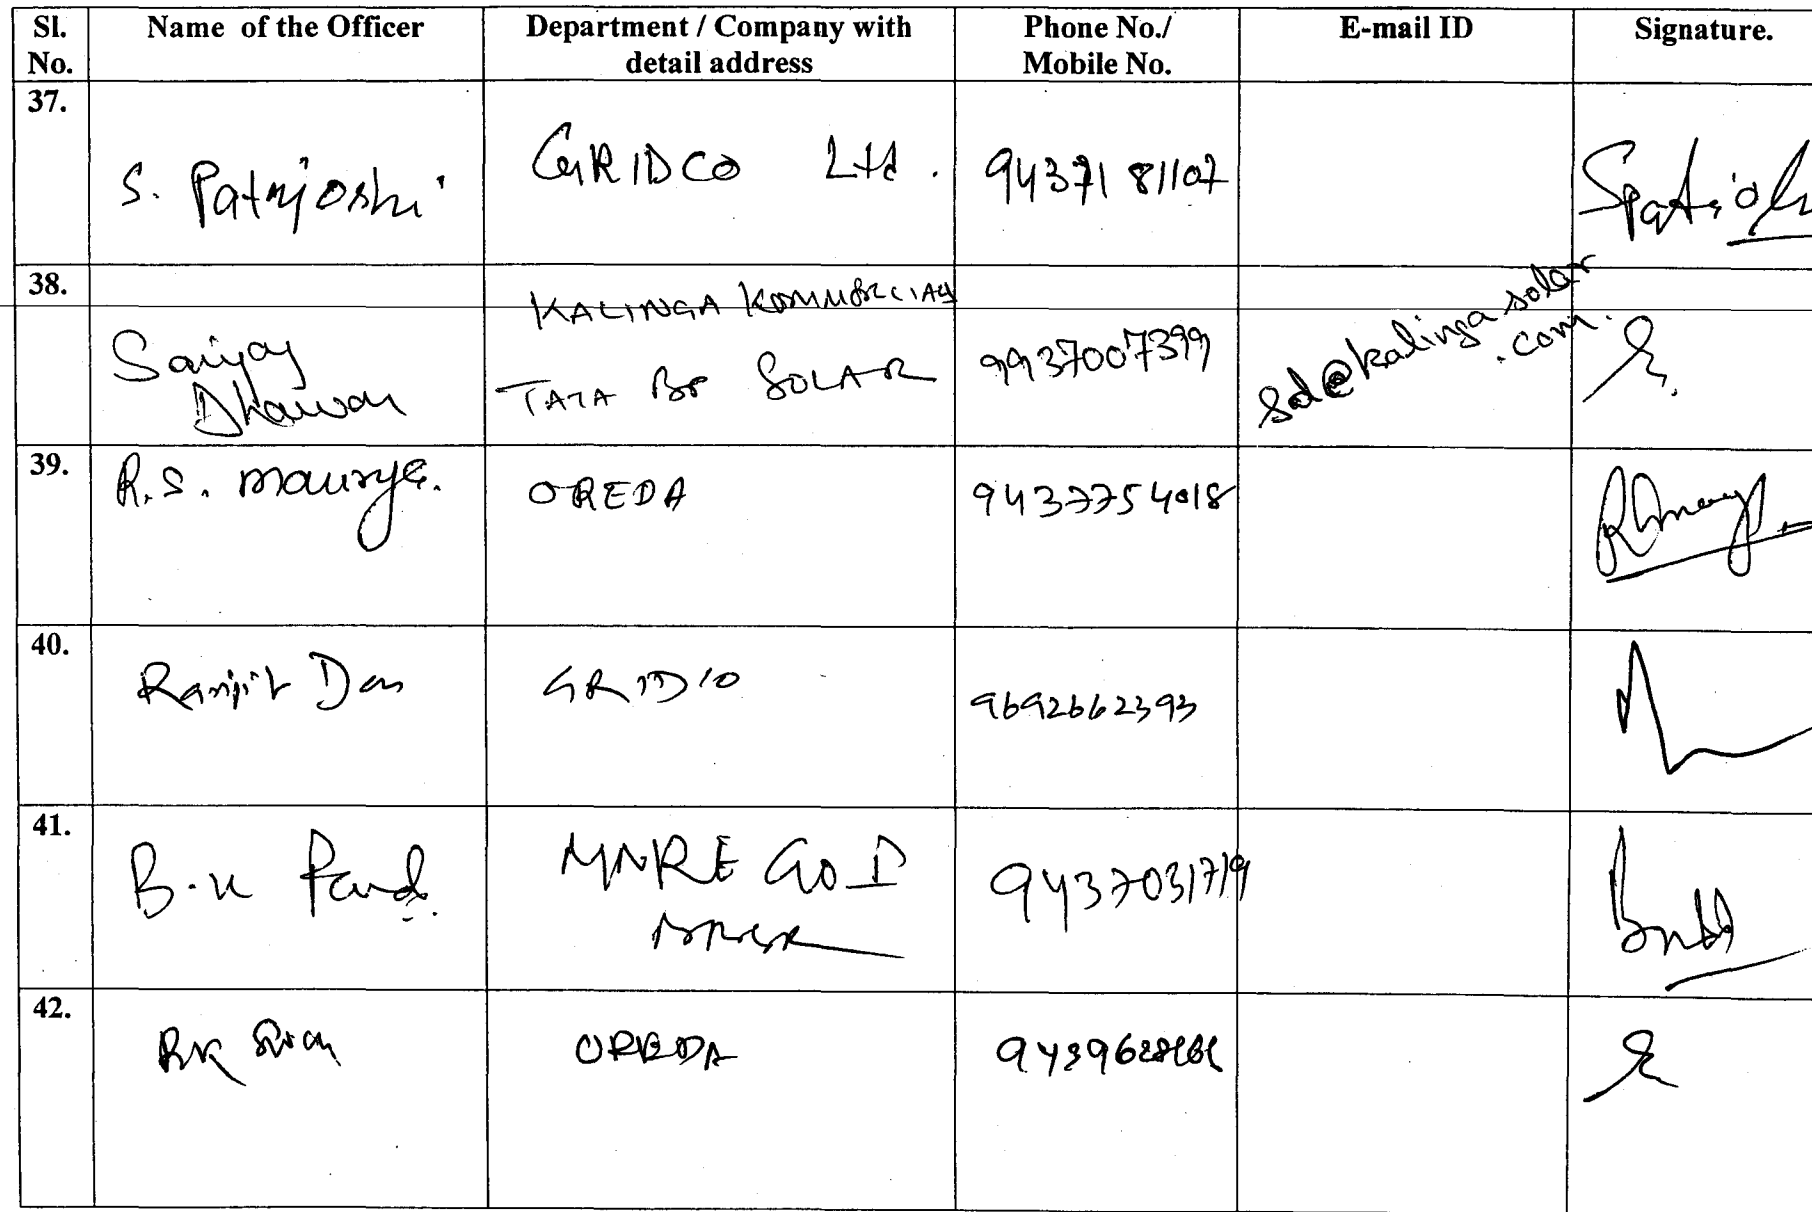 Sl. No. Name of the Officer Department / Company with detail address Phone No./ Mobile No. E-mail ID Signature.
37. S. Patnjoshi GRIDCO Ltd. 94371 81107
38. Sanjay Dhawan KALINGA KOMMERCIAL TATA BP SOLAR 9937007399 sd@kalingasolar.com.
39. R.S. maurya. OREDA 9437754018
40. Ranjit Das GRIDCO 9692662393
41. B.K MNRE GoI 9437031719
42. RK OREDA